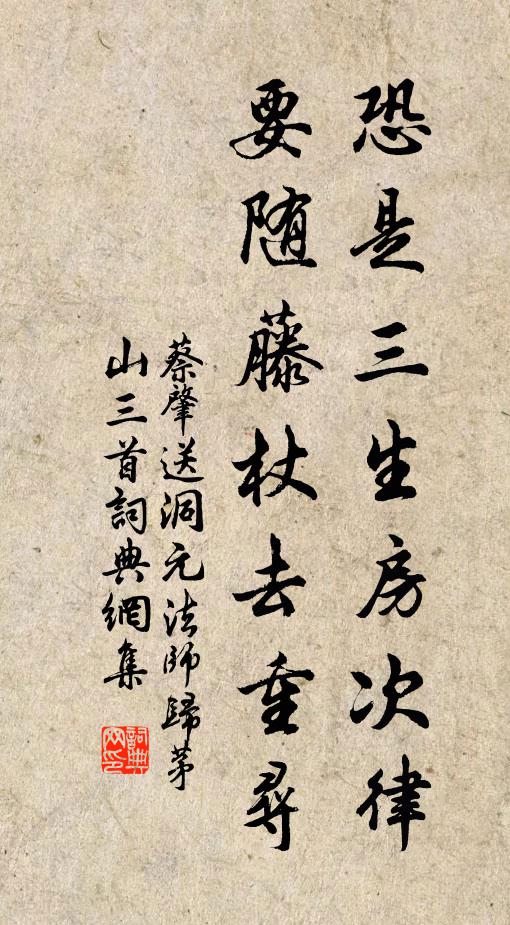 恐是三生房次律
要随藤杖去重尋
蔡肇送洞元法師歸茅
山三首詞典網集
詞典
网印